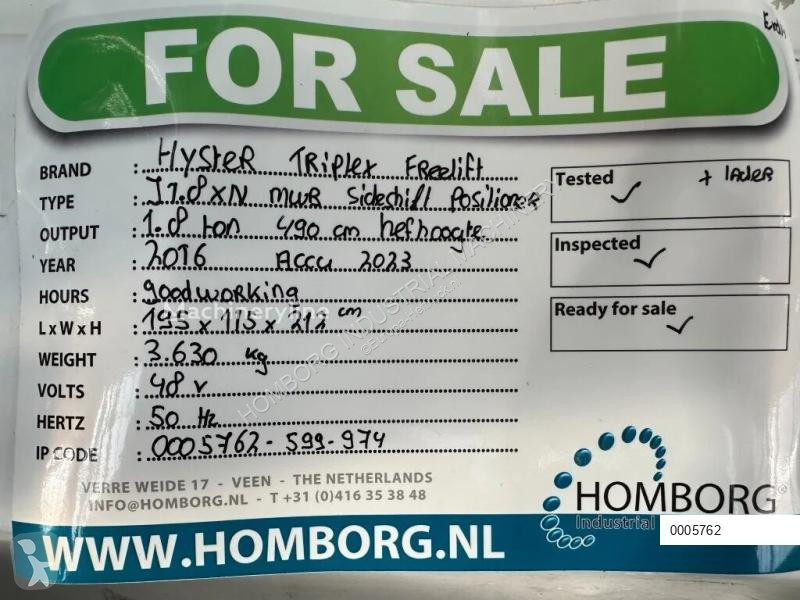 FOR SALE
BRAND : HYSTER TRiplex FReelift
TYPE : J1.8XN MWR Sideshift Positioner
OUTPUT : 1.8 ton 490 cm hefhoogte
YEAR : 2016 Accu 2023
HOURS : goodworking
L x W x H : 195 x 115 x 212 cm
WEIGHT : 3.630 kg
VOLTS : 48 v
HERTZ : 50 Hz
IP CODE : 0005762-599-974
Tested + lader
Inspected
Ready for sale
Machineryline
HOMBORG INDUSTRIAL MACHINERY
VERRE WEIDE 17 - VEEN - THE NETHERLANDS
INFO@HOMBORG.NL - T +31 (0)416 35 38 48
HOMBORG
Industrial
0005762
WWW.HOMBORG.NL